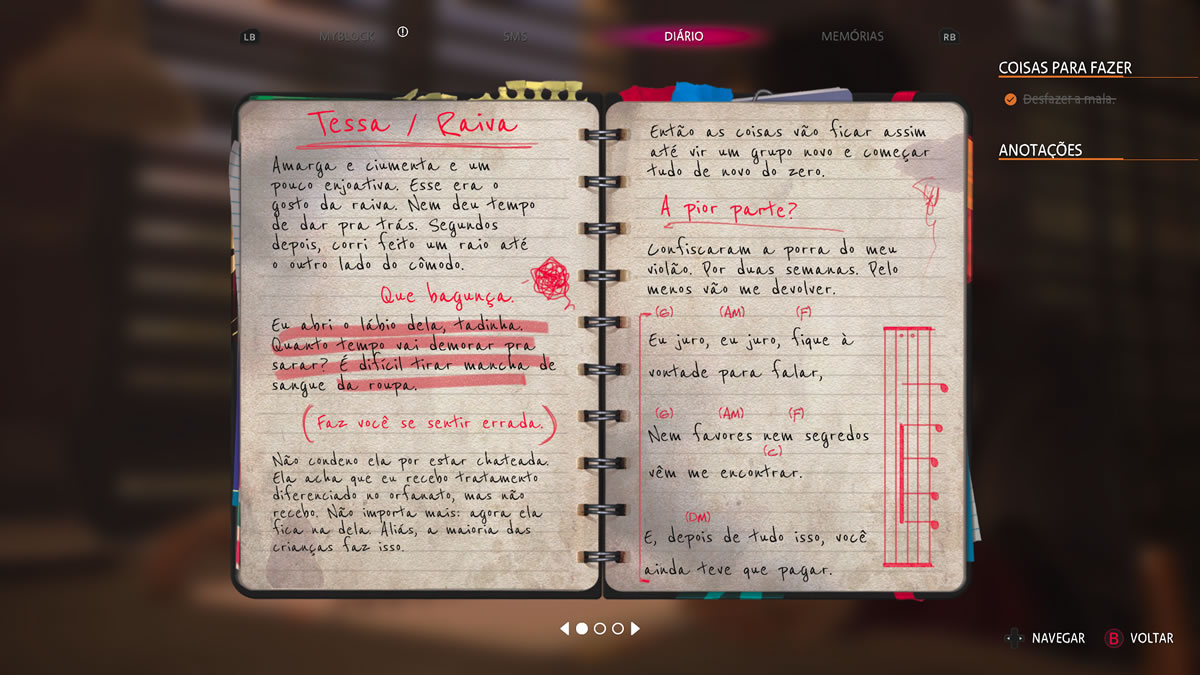 LB
MYBLOCK
SMS
DIÁRIO
MEMÓRIAS
RB
Tessa / Raiva
Amarga e ciumenta e um
pouco enjoativa. Esse era o
gosto da raiva. Nem deu tempo
de dar pra trás. Segundos
depois, corri feito um raio até
o outro lado do cômodo.
Que bagunça.
Eu abri o lábio dela, tadinha.
Quanto tempo vai demorar pra
sarar? É difícil tirar mancha de
sangue da roupa.
(Faz você se sentir errada.)
Não condeno ela por estar chateada.
Ela acha que eu recebo tratamento
diferenciado no orfanato, mas não
recebo. Não importa mais: agora ela
fica na dela. Aliás, a maioria das
crianças faz isso.
Então as coisas vão ficar assim
até vir um grupo novo e começar
tudo de novo do zero.
A pior parte?
Confiscaram a porra do meu
violão. Por duas semanas. Pelo
menos vão me devolver.
(G) (AM) (F)
Eu juro, eu juro, fique à
vontade para falar,
(G) (AM) (F)
Nem favores nem segredos
(C)
vêm me encontrar.
(DM)
E, depois de tudo isso, você
ainda teve que pagar.
COISAS PARA FAZER
Desfazer a mala.
ANOTAÇÕES
NAVEGAR
B VOLTAR